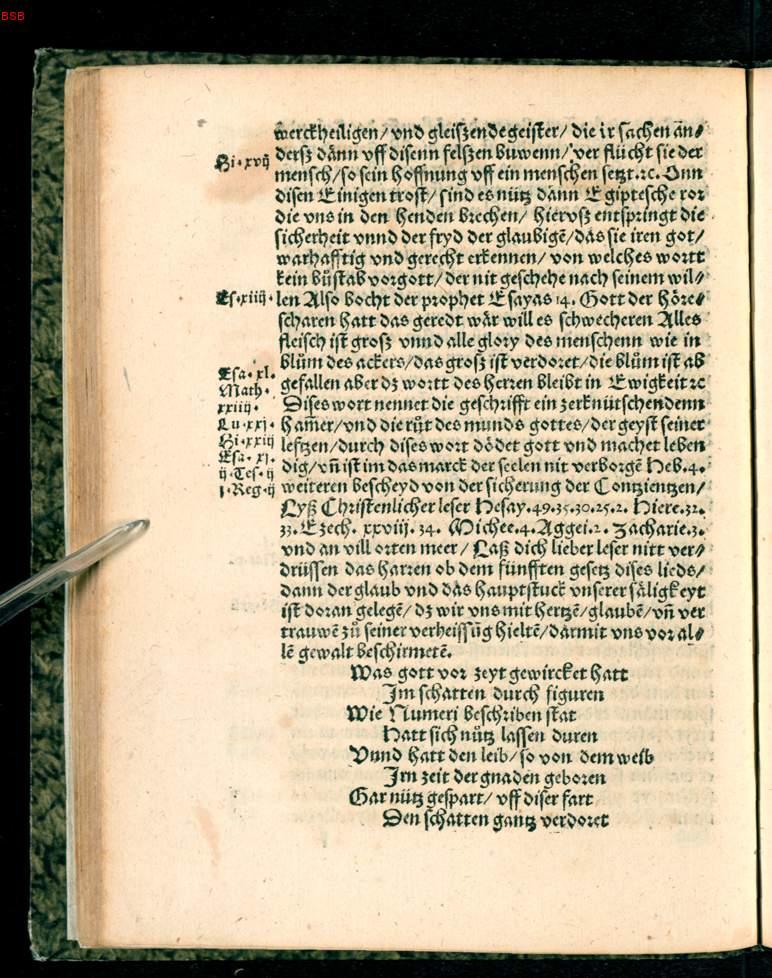 BSB
werckheiligen/ vnd gleiszendegeister/ die ir sachen an⸗
Hi·xvij
dersz dann vff disenn felszen buwenn/ ver flůcht sie der
mensch/ so sein hoffnung vff ein menschen setzt.ꝛc. Onn
disen Einigen trost/ sind es nütz dann Egiptesche ror
die vns in den henden brechen/ hiervsz entspringt die
sicherheit vnnd der fryd der glaubigē/ das sie iren got/
warhafftig vnd gerecht erkennen/ von welches wortt
kein bůstab vorgott/ der nit geschehe nach seinem wil⸗
Es·xiiij·
len Also bocht der prophet Esayas 14. Gott der höre⸗
scharen hatt das geredt wår will es schwecheren Alles
fleisch ist grosz vnnd alle glory des menschenn wie in
blům des ackers/ das grosz ist verdoret/ die blům ist ab
Esa·xl·
gefallen aber dz wortt des herren bleibt in Ewigkeit ꝛc
Math·
xxiiij·
Dises wort nennet die geschrifft ein zerknütschendenn
Lu·xxj·
ham̄er/ vnd die růt des munds gottes/ der geyst seiner
Hi·xxiij
lefftzen/ durch dises wort dödet gott vnd machet leben
Esa·xj·
dig/ vn̄ ist im das marck der seelen nit verborgē Heb.4.
ij·Tes·ij
j·Reg·ij
weiteren bescheyd von der sicherung der Contzientzen/
Lyß Christenlicher leser Hesay.49.35.30.25.2. Hiere.32.
33. Ezech. xxviij. 34. Michee.4. Aggei.2. Zacharie.3.
vnd an vill orten meer/ Laß dich lieber leser nitt ver⸗
drüssen das harren ob dem fünfften gesetz dises lieds/
dann der glaub vnd das hauptstuck vnserer såligkeyt
ist doran gelegē/ dz wir vns mit hertzē/ glaubē/ vn̄ ver
trauwē zů seiner verheissūg hieltē/ darmit vns vor al⸗
lē gewalt beschirmetē.
Was gott vor zeyt gewircket hatt
Im schatten durch figuren
Wie Numeri beschriben stat
Hatt sich nütz lassen duren
Vnnd hatt den leib/ so von dem weib
Irn zeit der gnaden geboren
Gar nütz gespart/ vff diser fart
Den schatten gantz verdoret